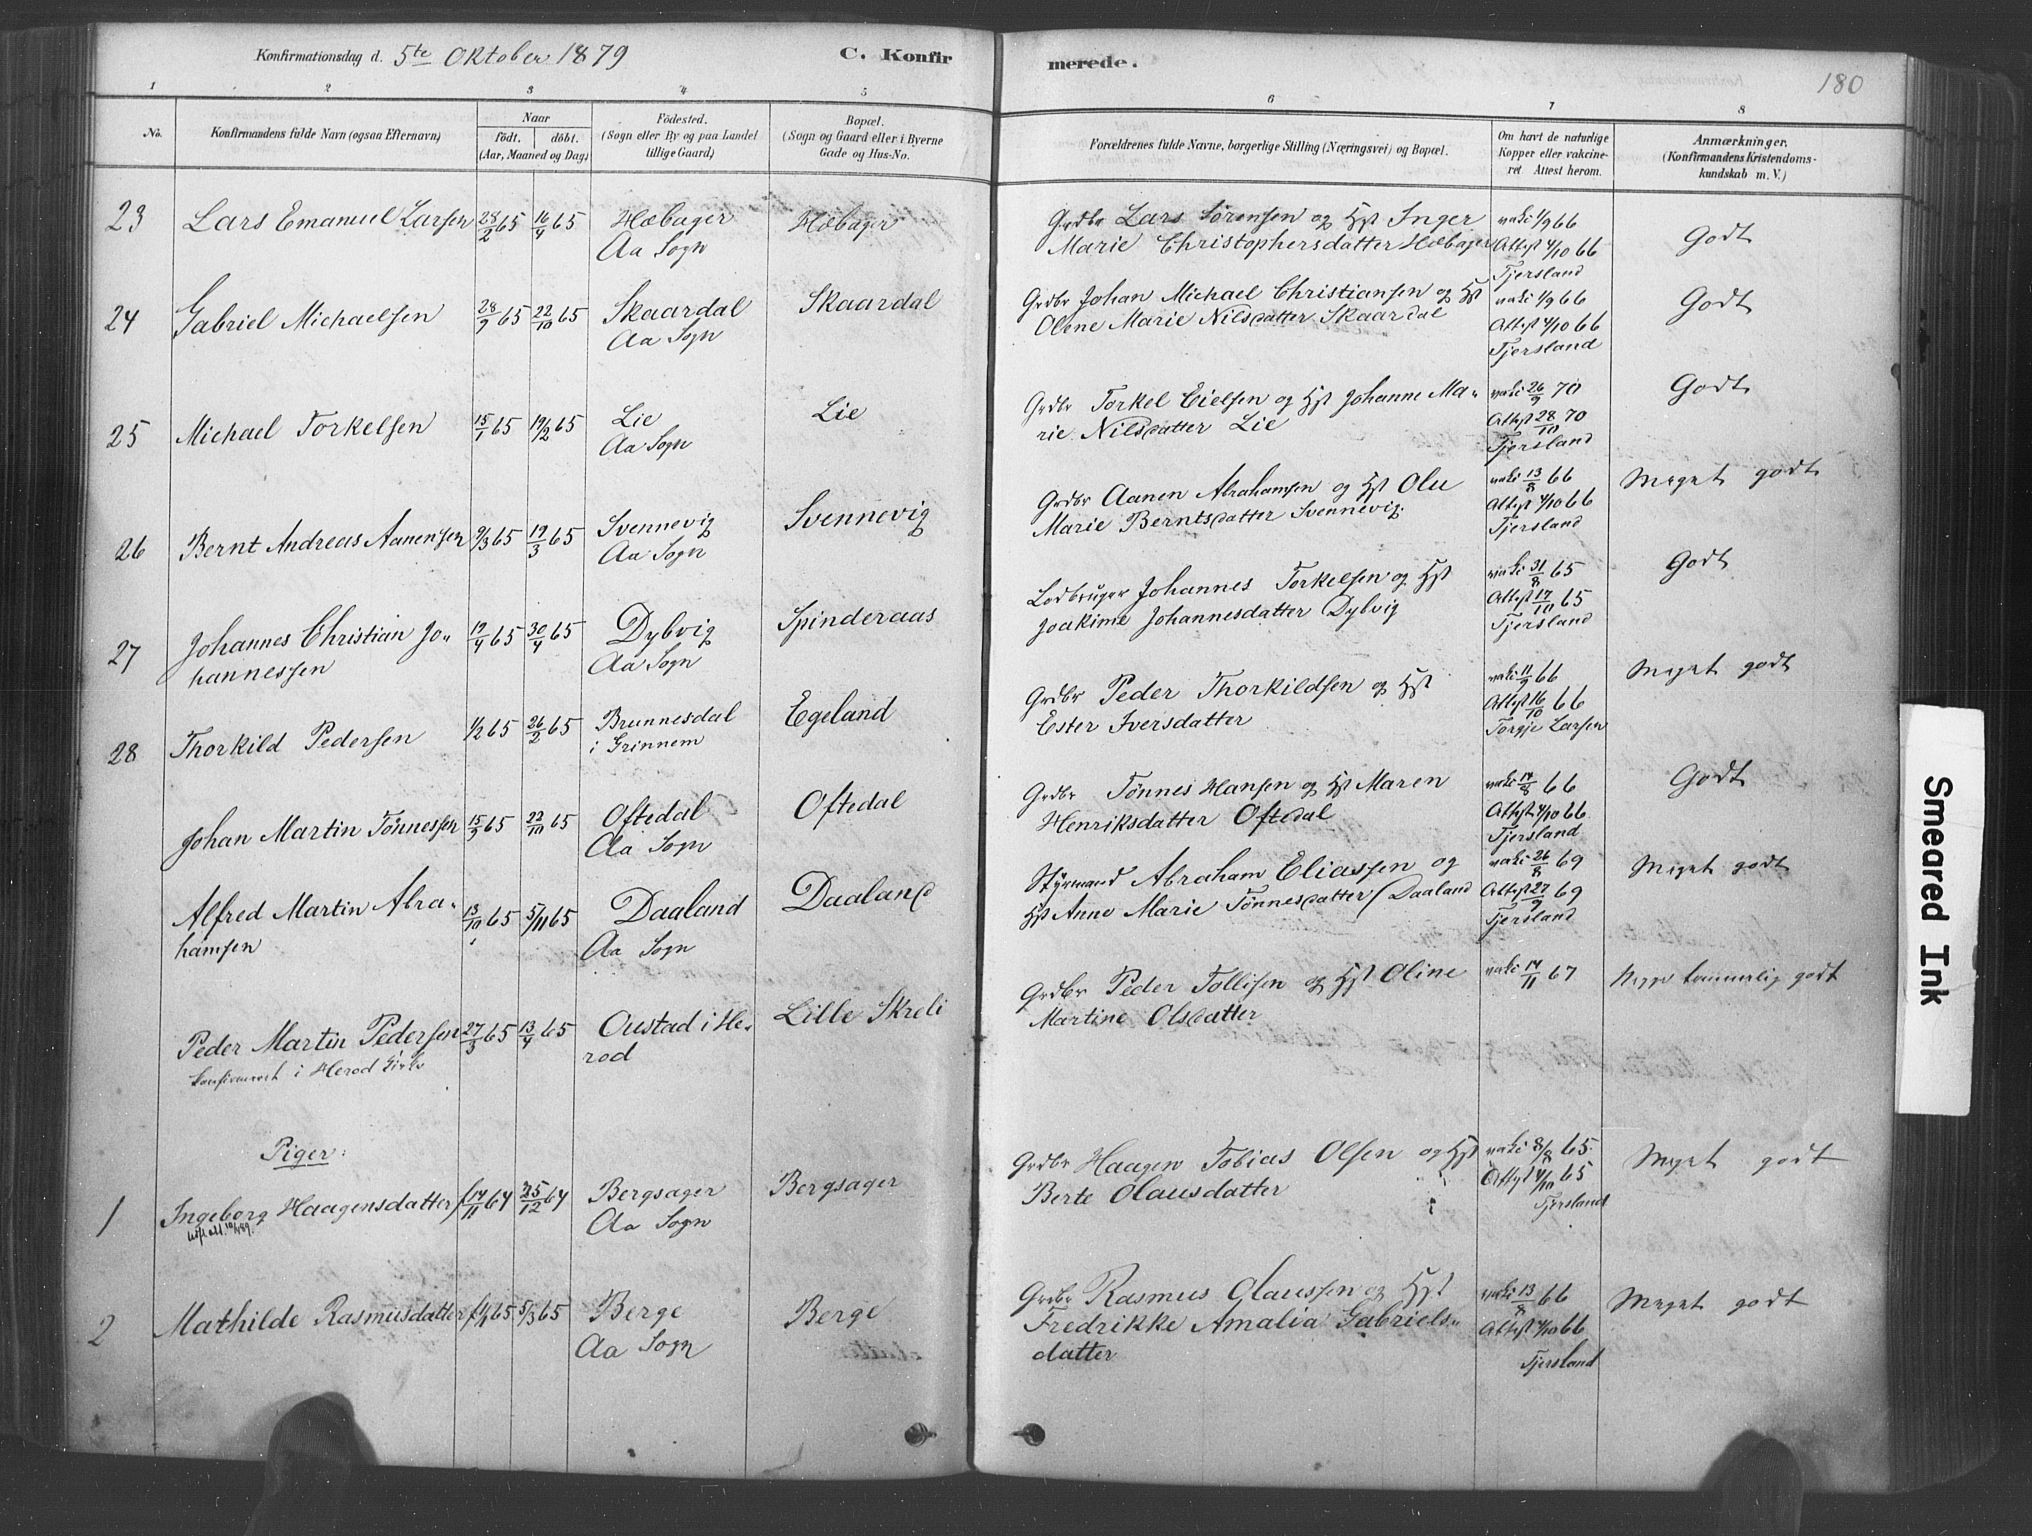 Konfirmationsdag d. 5te Oktober 1879
C. Konfirmerede.
180
1 2 3 4 5 6 7 8
No.
Konfirmandens fulde Navn (ogsaa Efternavn)
Naar
födt. döbt.
(Aar, Maaned og Dag)
Födested.
(Sogn eller By og paa Landet
tillige Gaard)
Bopæl.
(Sogn og Gaard eller i Byerne
Gade og Hus-No.
Forældrenes fulde Navne, borgerlige Stilling (Næringsvei) og Bopæl.
Om havt de naturlige
Kopper eller vakcine-
ret Attest herom.
Anmærkninger.
(Konfirmandens Kristendoms-
kundskab m. V.)
23 Lars Emanuel Larsen 28/2 65 16/4 65 Hæbager Hæbager Grdbr Lars Sörensen og Hst Inger vaki 1/9 66 Godt
Aa Sogn Marie Christophersdatter Hæbager Attest 4/10 66
Tjersland
24 Gabriel Michaelsen 28/9 65 22/10 65 Skaardal Skaardal Grdbr Johan Michael Christiansen og Hst vaki 1/9 66 Godt
Aa Sogn Olene Marie Nilsdatter Skaardal Attest 4/10 66
Tjersland
25 Michael Torkelsen 15/1 65 19/2 65 Lie Lie Grdbr Torkel Eielsen og Hst Johanne Ma- vaki 26/9 70 Godt
Aa Sogn rie Nilsdatter Lie Attest 28/10 70
Tjersland
26 Bernt Andreas Aanensen 9/3 65 19/3 65 Svennevig Svennevig Grdbr Aanen Abrahamsen og Hst Olu vaki 13/8 66 Meget godt
Aa Sogn Marie Berntsdatter Svennevig. Attest 4/10 66
Tjersland
27 Johannes Christian Jo- 19/4 65 30/4 65 Dybvig Spinderaas Lodbruger Johannes Torkelsen og Hst vaki 31/8 65 Godt
hannessen Aa Sogn Joakime Johannesdatter Dybvig Attest 17/10 65
Tjersland
28 Thorkild Pedersen 1/2 65 26/2 65 Brunnesdal Egeland Grdbr Peder Thorkildsen og Hst vaki 11/9 66 Meget godt
i Grinnem Ester Iversdatter Attest 16/10 66
Torgje Larsen
Johan Martin Tönnessen 15/9 65 22/10 65 Oftedal Oftedal Grdbr Tönnes Hansen og Hst Maren vaki 14/8 66 Godt
Aa Sogn Henriksdatter Oftedal Attest 4/10 66
Tjersland
Alfred Martin Abra- 13/10 65 5/11 65 Daaland Daaland Styrmand Abraham Eliassen og vaki 26/8 69 Meget godt
hamsen Aa Sogn Hst Anne Marie Tönnesdatter Daaland Attest 27/9 69
Tjersland
Peder Martin Pedersen 27/3 65 13/4 65 Oustad i He- Lille Skreli Grdbr Peder Tollisen og Hst Oline vaki 14/11 67 godt
konfirmeret i Herod Kirke rod Martine Olsdatter
Piger:
1 Ingeborg Haagensdatter f 14/11 64 25/12 64 Bergsager Bergsager Grdbr Haagen Tobias Olsen og Hst vaki 8/8 65 Meget godt
Aa Sogn Berte Olausdatter Attest 4/10 65
Tjersland
2 Mathilde Rasmusdatter 65 5/3 65 Berge Berge Grdbr Rasmus Olaussen og Hst vaki 13/8 66 Meget godt
Aa Sogn Fredrikke Amalia Gabriels- Attest 4/10 66
datter Tjersland
Smeared Ink